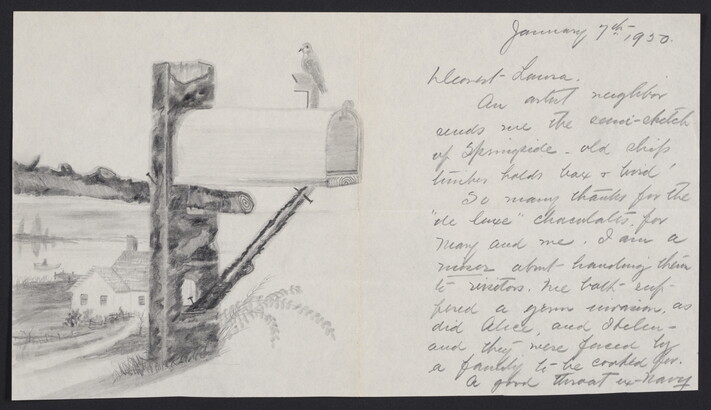 January 7th 1950.
Dearest Laura.
An artist neighbor
sends me the semi-sketch
of Springside - old ship
timber holds box & bird!
So many thanks for the
"de luxe" chocolates, for
Mary and me. I am a
miser about handing them
to visitors. We both suf-
fered a germ invasion, as
did Alice, and Helen -
and they were faced by
a family to be cooked for.
A good throat ex-Navy